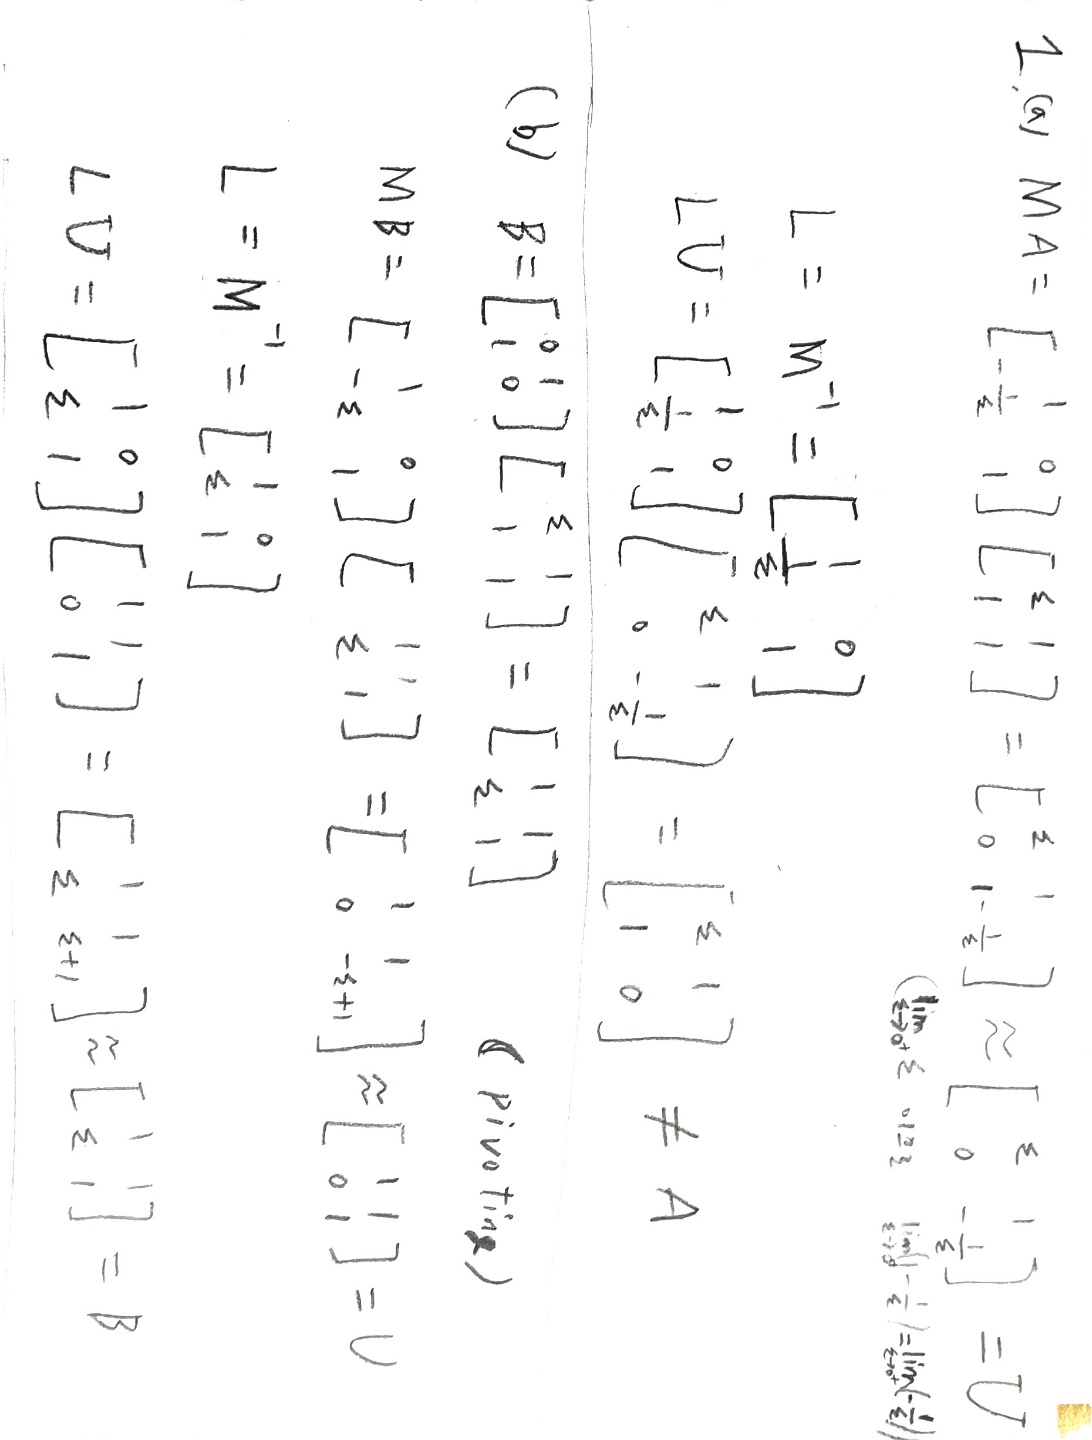 1.(a) MA = [1 0; -1/ε 1] [ε 1; 1 1] = [ε 1; 0 1-1/ε] ≈ [ε 1; 0 -1/ε] = U
(lim ε→0+ ε 이므로 lim ε→0+ (1-1/ε) = lim ε→0+ (-1/ε))
L = M⁻¹ = [1 0; 1/ε 1]
LU = [1 0; 1/ε 1] [ε 1; 0 -1/ε] = [ε 1; 1 0] ≠ A
(b) B = [0 1; 1 0] [ε 1; 1 1] = [1 1; ε 1] (pivoting)
MB = [1 0; -ε 1] [1 1; ε 1] = [1 1; 0 -ε+1] ≈ [1 1; 0 1] = U
L = M⁻¹ = [1 0; ε 1]
LU = [1 0; ε 1] [1 1; 0 1] = [1 1; ε ε+1] ≈ [1 1; ε 1] = B